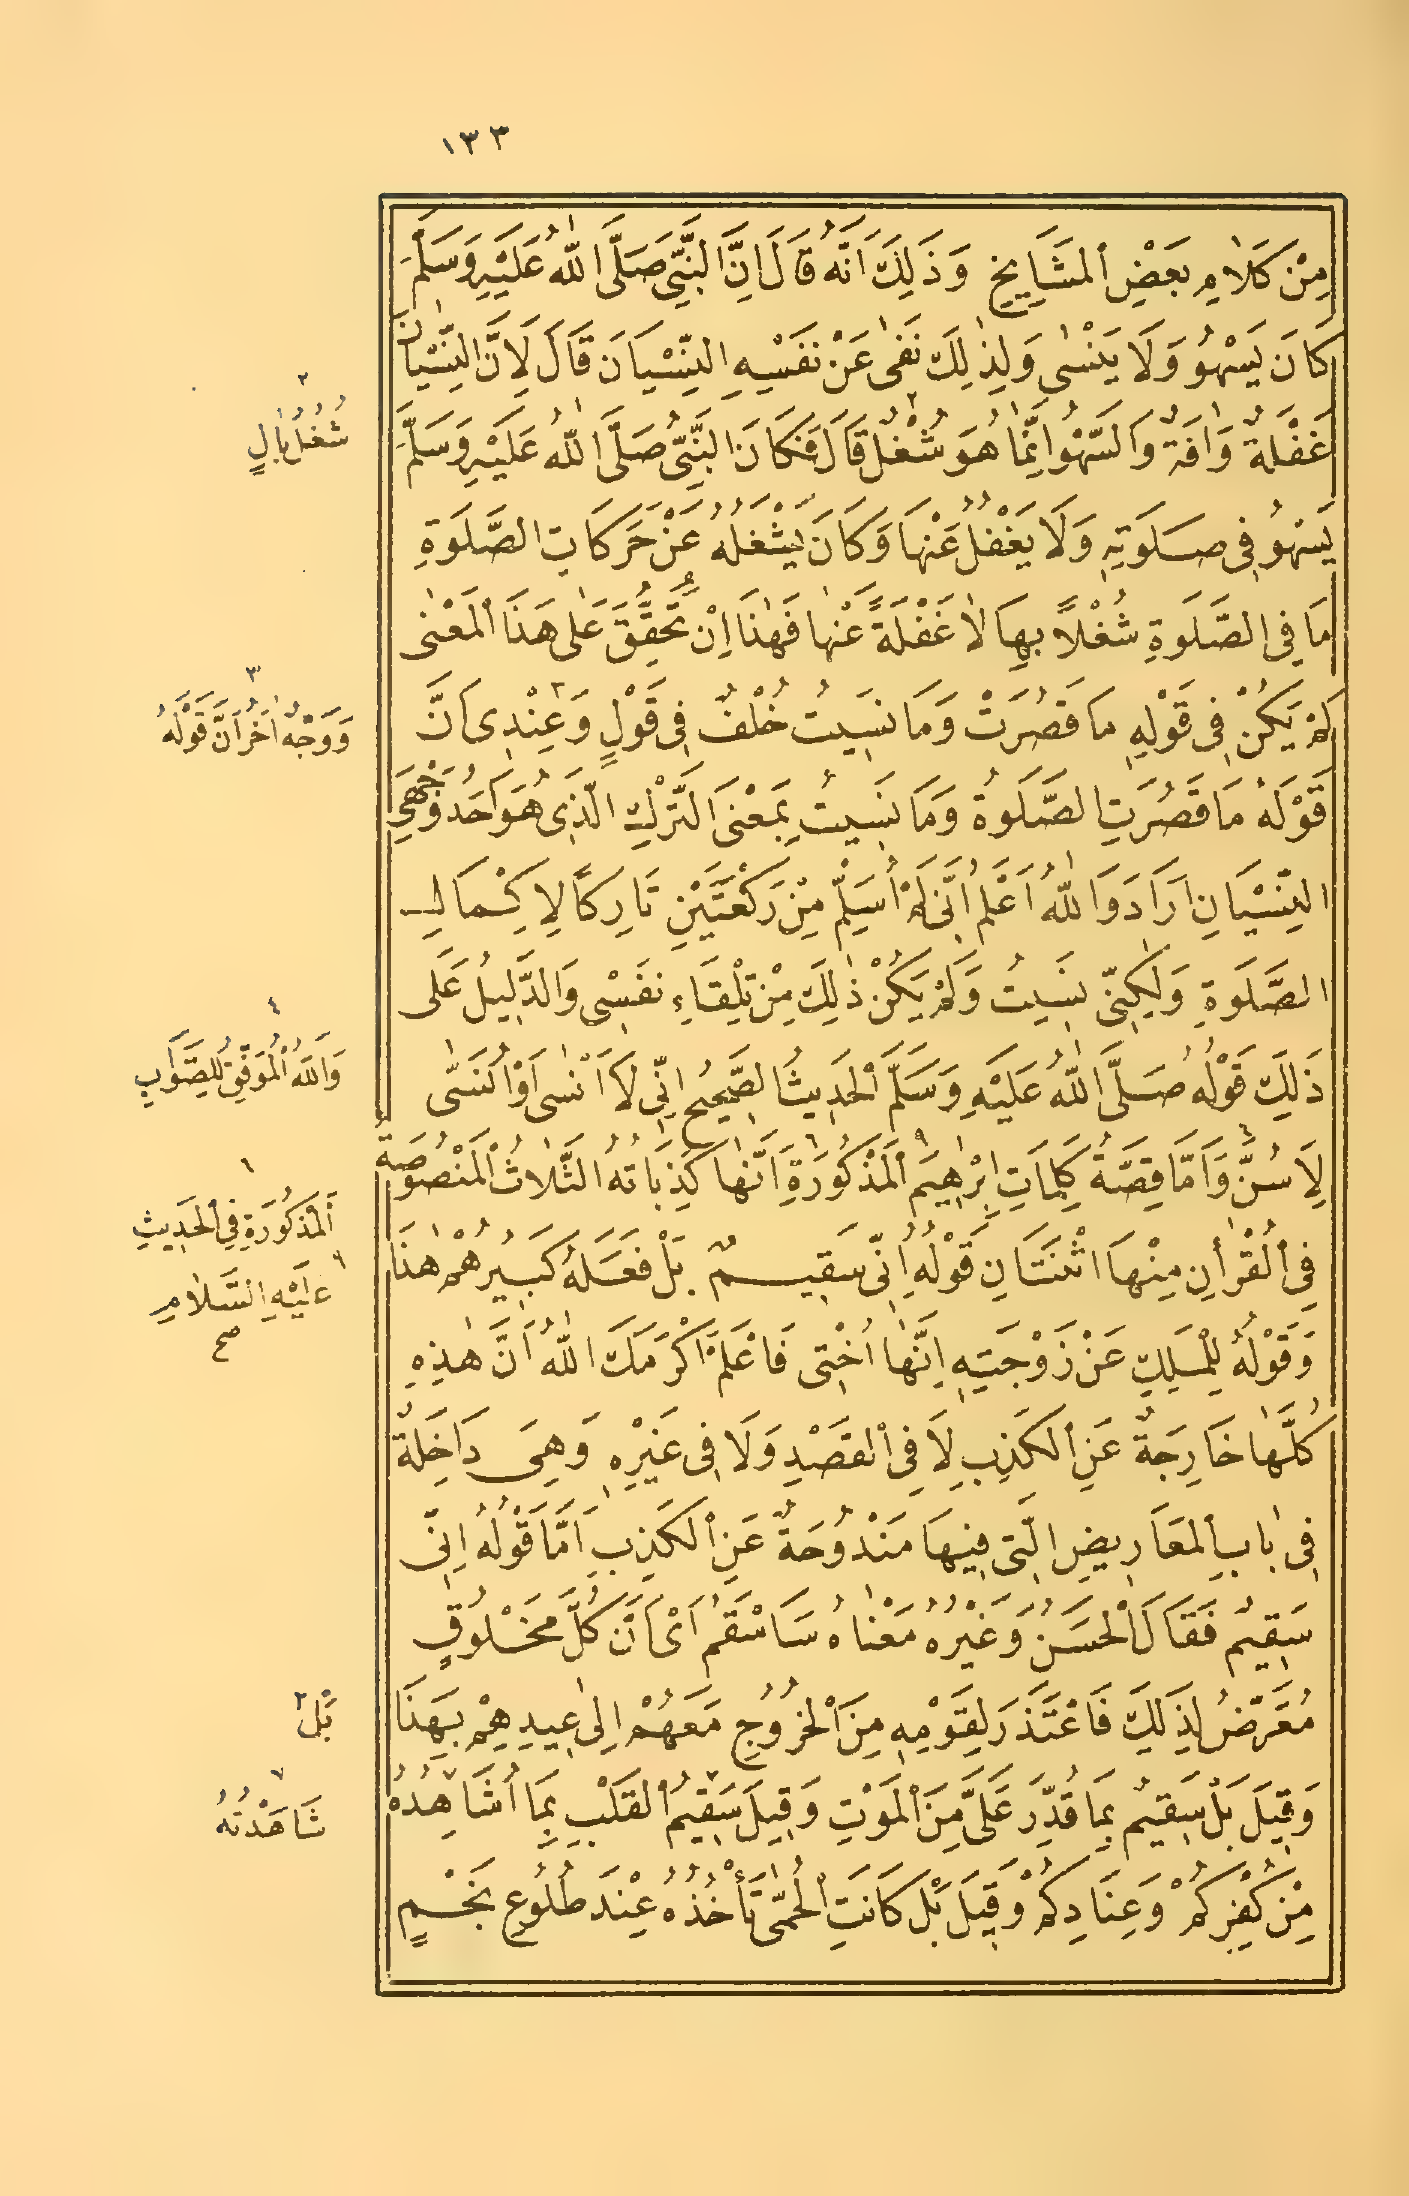 ١٣٣
مِنْ كَلَامِ بَعْضِ الْمَشَايِخِ وَذَلِكَ أَنَّهُ قَالَ اِنَّ النَّبِيَّ صَلَّى اللهُ عَلَيْهِ وَسَلَّمَ
كَانَ يَسْهُو وَلَا يَنْسٰى وَلِذٰلِكَ نَفٰى عَنْ نَفْسِهِ النِّسْيَانَ قَالَ لِاَنَّ النِّسْيَانَ
غَفْلَةٌ وَاٰفَةٌ وَالسَّهْوُ اِنَّمَا هُوَ شُغْلٌ قَالَ فَكَانَ النَّبِيُّ صَلَّى اللهُ عَلَيْهِ وَسَلَّمَ
يَسْهُو فِى صَلَوتِهِ وَلَا يَغْفُلُ عَنْهَا وَكَانَ يَشْغَلُهُ عَنْ حَرَكَاتِ الصَّلَوةِ
مَا فِى الصَّلَوةِ شُغْلاً بِهَا لٰا غَفْلَةً عَنْهَا فَهٰذَا اِنْ تُحُقِّقَ عَلٰى هٰذَا الْمَعْنٰى
لَمْ يَكُنْ فِى قَوْلِهِ مَا قَصُرَتْ وَمَا نَسِيتُ خُلْفٌ فِى قَوْلٍ وَعِنْدِى اَنَّ
قَوْلَهُ مَا قَصُرَتِ الصَّلَوةُ وَمَا نَسِيتُ بِمَعْنَى التَّرْكِ الَّذِى هُوَ اَحَدُ وَجْهَيِ
النِّسْيَانِ اَرَادَ وَاللهُ اَعْلَمُ اَنِّى لَمْ اُسَلِّمْ مِنْ رَكْعَتَيْنِ تَارِكًا لِاِكْمَالِ
الصَّلَوةِ وَلٰكِنِّى نَسِيتُ وَلَمْ يَكُنْ ذٰلِكَ مِنْ تِلْقَاءِ نَفْسِى وَالدَّلِيلُ عَلٰى
ذٰلِكَ قَوْلُهُ صَلَّى اللهُ عَلَيْهِ وَسَلَّمَ الْحَدِيثُ الصَّحِيحُ اِنِّى لَاَنْسٰى اَوْ اُنَسّٰى
لِاَسُنَّ وَاَمَّا قِصَّةُ كَلِمَاتِ اِبْرٰهِيمَ الْمَذْكُورَةِ اَنَّهَا كَذِبَاتُهُ الثَّلٰاثُ الْمَنْصُوصَةُ
فِى الْقُرْاٰنِ مِنْهَا اثْنَتَانِ قَوْلُهُ اِنِّى سَقِيمٌ بَلْ فَعَلَهُ كَبِيرُهُمْ هٰذَا
وَقَوْلُهُ لِلْمَلِكِ عَنْ زَوْجَتِهِ اِنَّهَا اُخْتِى فَاعْلَمْ اَكْرَمَكَ اللهُ اَنَّ هٰذِهِ
كُلَّهَا خَارِجَةٌ عَنِ الْكَذِبِ لَا فِى الْقَصْدِ وَلَا فِى غَيْرِهِ وَهِىَ دَاخِلَةٌ
فِى بَابِ الْمَعَارِيضِ الَّتِى فِيهَا مَنْدُوحَةٌ عَنِ الْكَذِبِ اَمَّا قَوْلُهُ اِنِّى
سَقِيمٌ فَقَالَ الْحَسَنُ وَغَيْرُهُ مَعْنَاهُ سَاَسْقَمُ اَىْ اَنَّ كُلَّ مَخْلُوقٍ
مُعَرَّضٌ لِذَلِكَ فَاعْتَذَرَ لِقَوْمِهِ مِنَ الْخُرُوجِ مَعَهُمْ اِلٰى عِيدِهِمْ بِهَذَا
وَقِيلَ بَلْ سَقِيمٌ بِمَا قُدِّرَ عَلَىَّ مِنَ الْمَوْتِ وَقِيلَ سَقِيمُ الْقَلْبِ بِمَا اُشَاهِدُهُ
مِنْ كُفْرِكُمْ وَعِنَادِكُمْ وَقِيلَ بَلْ كَانَتِ الْحُمّٰى تَأْخُذُهُ عِنْدَ طُلُوعِ نَجْمٍ
٢
شُغْلُ بَالٍ
٣
وَوَجْهٌ اٰخَرُ اَنَّ قَوْلَهُ
٤
وَاللهُ الْمُوَفِّقُ لِلصَّوَابِ
٦
اَلْمَذْكُورَةِ فِى الْحَدِيثِ
٩
عَلَيْهِ السَّلٰامِ
صح
٢
بَلْ
٧
شَاهَدْتُهُ